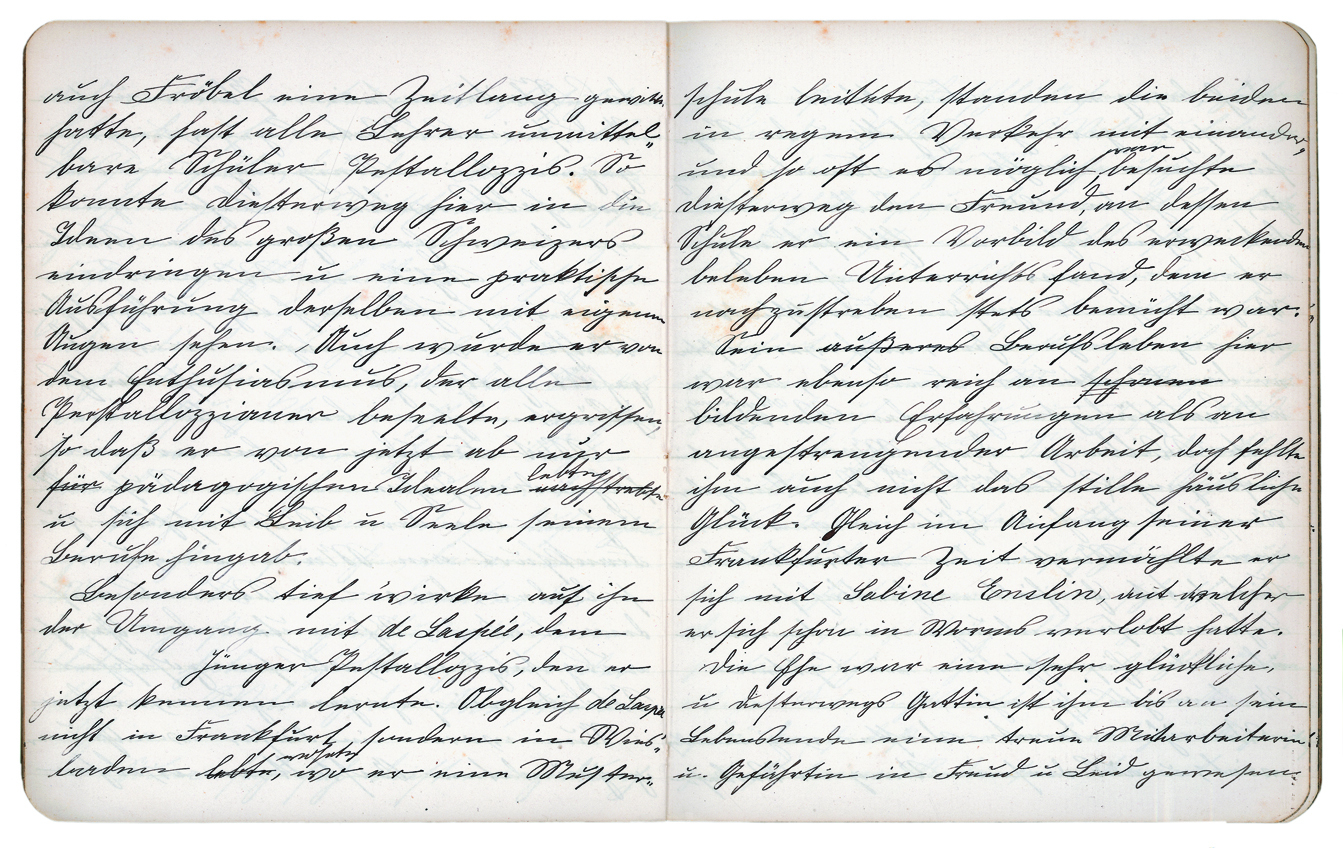 auch Fröbel eine Zeitlang gewirkt
hatte, fast alle Lehrer unmittel"
bare Schüler Pestallozzis. So
konnte Diesterweg hier in die
Ideen des großen Schweizers
eindringen u eine praktische
Ausführung derselben mit eigenen
Augen sehen. Auch wurde er von
dem Enthusiasmus, der alle
Pestallozzianer beseelte, ergriffen,
so daß er von jetzt ab nur
für pädagogischen Idealen lebte nachstrebte
u sich mit Leib u Seele seinem
Berufe hingab.
Besonders tief wirke auf ihn
der Umgang mit de Laspée, dem
Jünger Pestallozzis, den er
jetzt kennen lernte. Obgleich de Laspée
nicht in Frankfurt sondern in Wies"
baden lebte, wohnte wo er eine Muster"
schule leitete, standen die beiden
in regem Verkehr mit einander,
und so oft es möglich war besuchte
Diesterweg den Freund, an dessen
Schule er ein Vorbild des erweckenden
beleben Unterrichts fand, dem er
nachzustreben stets bemüht war.
Sein außeres Berufsleben hier
war ebenso reich an schönen
bildenden Erfahrungen als an
angestrengender Arbeit, doch fehlte
ihm auch nicht das stille häusliche
Glück. Gleich im Anfang seiner
Frankfurter Zeit vermählte er
sich mit Sabine Enslin, mit welcher
er sich schon in Worms verlobt hatte.
Die Ehe war eine sehr glückliche,
u Desterwegs Gattin ist ihm bis an sein
Lebensende eine treue Mitarbeiterin
u. Gefährtin in Freud u Leid gewesen.